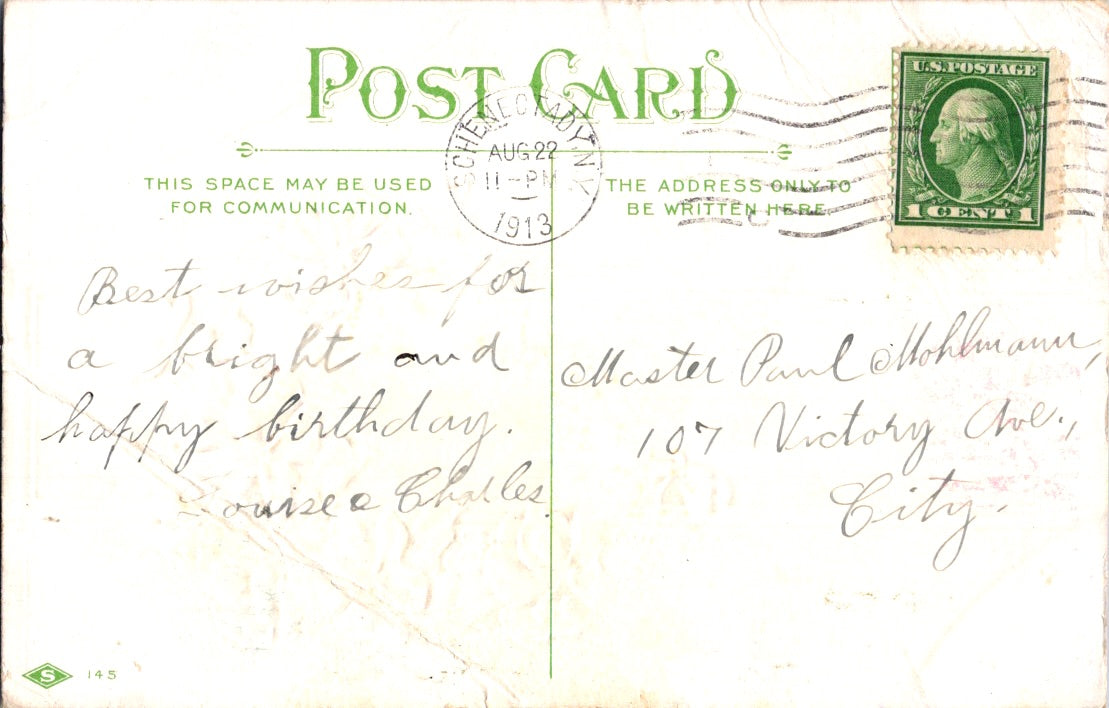 POST CARD
SCHENECTADY, N.Y.
AUG 22
11-PM
1913
U.S. POSTAGE
1 CENT 1
THIS SPACE MAY BE USED
FOR COMMUNICATION.
THE ADDRESS ONLY TO
BE WRITTEN HERE
Best wishes for
a bright and
happy birthday.
Louise & Charles.
Master Paul Mohlmann,
107 Victory Ave.,
City.
S 145